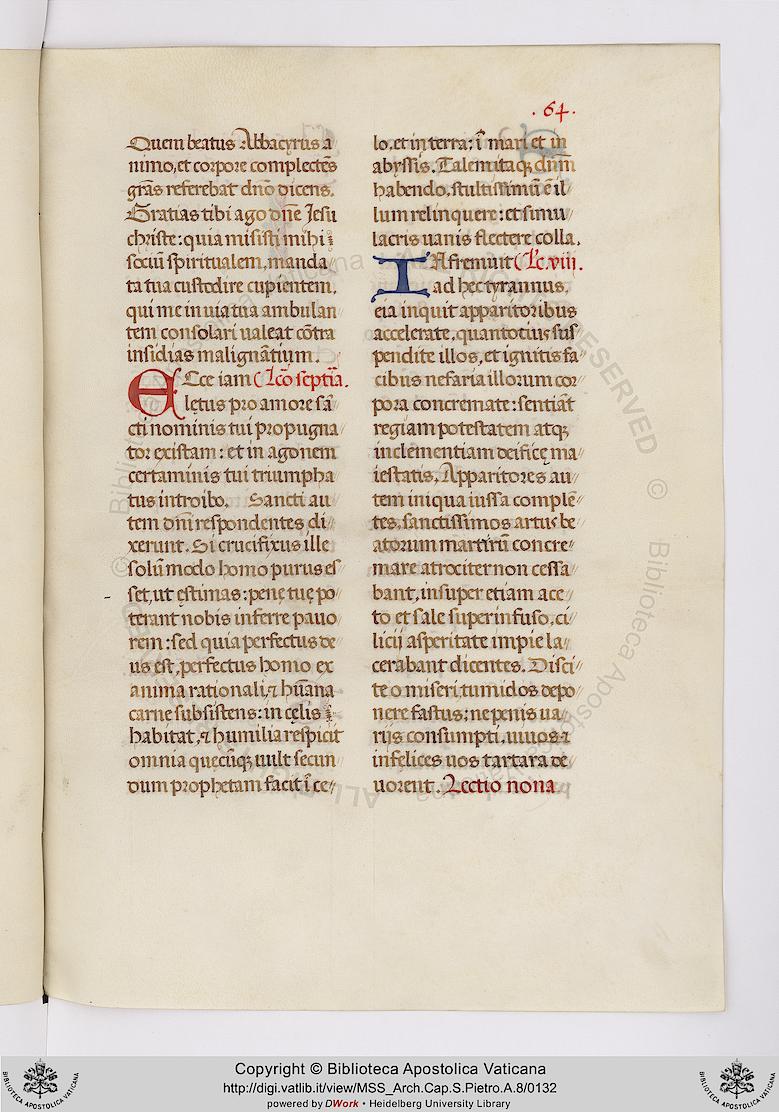 .64.
Quem beatus Abbacyrus a
nimo, et corpore complectēs
grãs referebat dnõ dicens.
Gratias tibi ago dñe Jesu
christe: quia misisti mihi
sociũ spiritualem, manda
ta tua custodire cupientem,
qui me in uia tua ambulan
tem consolari ualeat cõtra
insidias malignãtium.
Ecce iam Lc̃o septĩa.
lętus pro amore sã
cti nominis tui propugna
tor existam: et in agonem
certaminis tui triumpha
tus introibo. Sancti au
tem dñi respondentes di
xerunt. Si crucifixus ille
solũmodo homo purus es
set, ut ęstimas: penę tuę po
terant nobis inferre pauo
rem: sed quia perfectus de
us est, perfectus homo ex
anima rationali, ⁊ hũana
carne subsistens: in cęlis
habitat, ⁊ humilia respicit
omnia quecũq; uult secun
dum prophetam facit ĩ ce
lo, et in terra: ĩ mari et in
abyssis. Talem itaq; dñm
habendo, stultissimũ ē il
lum relinquere: et simu
lacris uanis flectere colla.
Infremuit Lc̃. viii.
ad hec tyrannus,
eia inquit apparitoribus
accelerate, quantotius sus
pendite illos, et ignitis fa
cibus nefaria illorum cor
pora concremate: sentiãt
regiam potestatem atq;
inclementiam deificę ma
iestatis. Apparitores au
tem iniqua iussa complē
tes, sanctissimos artus be
atorum martirũ concre
mare atrociter non cessa
bant, insuper etiam ace
to et sale superinfuso, ci
licij asperitate impie la
cerabant dicentes. Disci
te o miseri, tumidos depo
nere fastus: ne penis ua
rijs consumpti, uiuos ⁊
infelices uos tartara de
uorent. Lectio nona
Copyright © Biblioteca Apostolica Vaticana
http://digi.vatlib.it/view/MSS_Arch.Cap.S.Pietro.A.8/0132
powered by DWork • Heidelberg University Library